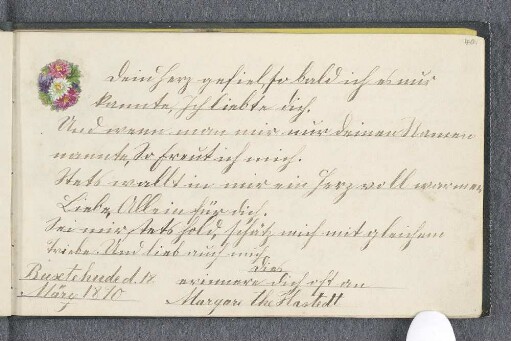 Dein Herz gefiel, so bald ich es nur
kannte, Ich liebte dich.
Und wenn man mir nur deinen Namen
nannte, So freut ich mich.
Stets wallt in mir ein Herz voll warmer
Liebe, Allein für dich.
Sei mir stets hold, schätz mich mit gleichem
Triebe Und lieb auch mich.
Buxtehude d. 18
März 1890
Dies
erinnere dich oft an
Margarethe Hastedt